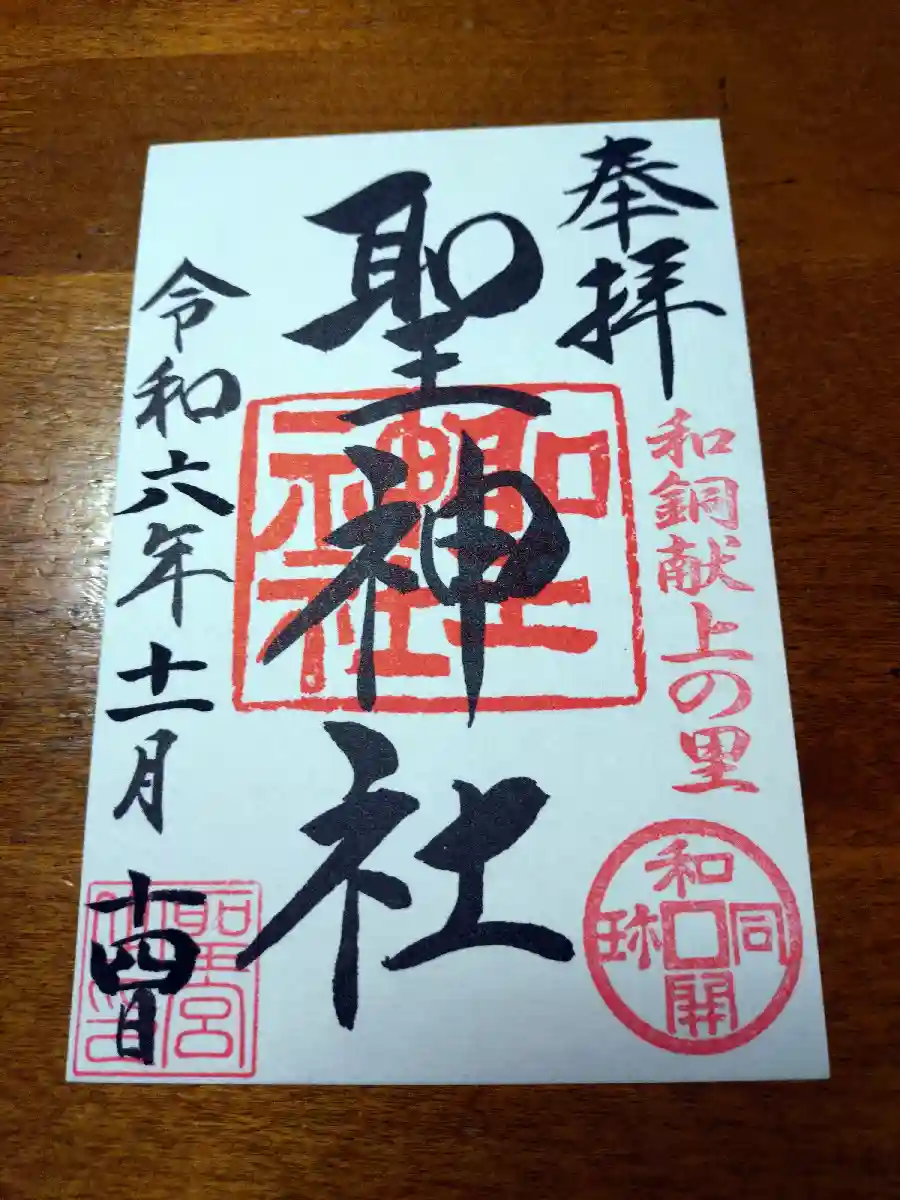 奉拝
和銅献上の里
和同開珎
聖神社
聖神社
令和六年十一月十四日